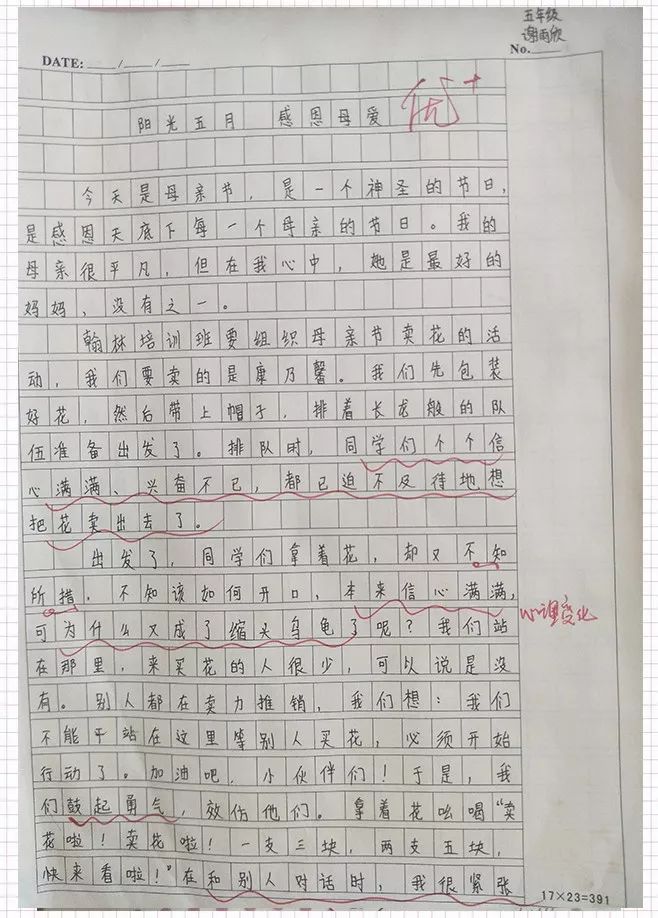 五年级
谢雨欣
DATE: ___/___/___
No.
阳光五月 感恩母爱
优+
今天是母亲节，是一个神圣的节日，
是感恩天底下每一个母亲的节日。我的
母亲很平凡，但在我心中，她是最好的
妈妈，没有之一。
翰林培训班要组织母亲节卖花的活
动，我们要卖的是康乃馨。我们先包装
好花，然后带上帽子，排着长龙般的队
伍准备出发了。排队时，同学们个个信
心满满、兴奋不已，都已迫不及待地想
把花卖出去了。
出发了，同学们拿着花，却又不知
所措，不知该如何开口，本来信心满满，
可为什么又成了缩头乌龟了呢？我们站
心理变化
在那里，来买花的人很少，可以说是没
有。别人都在卖力推销，我们想：我们
不能干站在这里等别人买花，必须开始
行动了。加油吧，小伙伴们！于是，我
们鼓起勇气，效仿他们。拿着花吆喝“卖
花啦！卖花啦！一支三块，两支五块，
快来看啦！”在和别人对话时，我很紧张
17×23=391